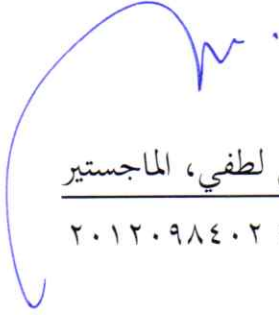 لطفي، الماجستير
٢٠١٢٠٩٨٤٠٢